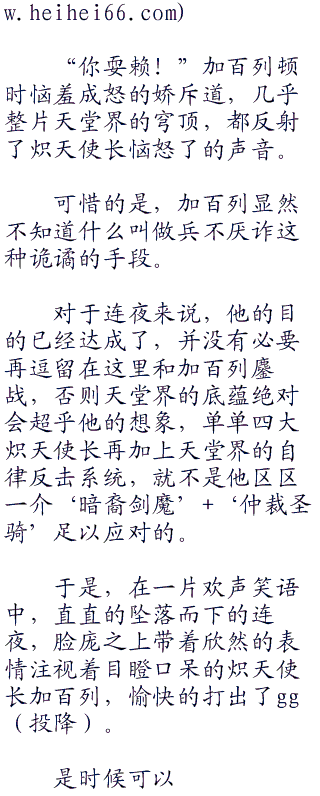 w.heihei66.com)
“你耍赖！”加百列顿
时恼羞成怒的娇斥道，几乎
整片天堂界的穹顶，都反射
了炽天使长恼怒了的声音。
可惜的是，加百列显然
不知道什么叫做兵不厌诈这
种诡谲的手段。
对于连夜来说，他的目
的已经达成了，并没有必要
再逗留在这里和加百列鏖
战，否则天堂界的底蕴绝对
会超乎他的想象，单单四大
炽天使长再加上天堂界的自
律反击系统，就不是他区区
一介‘暗裔剑魔’+‘仲裁圣
骑’足以应对的。
于是，在一片欢声笑语
中，直直的坠落而下的连
夜，脸庞之上带着欣然的表
情注视着目瞪口呆的炽天使
长加百列，愉快的打出了gg
（投降）。
是时候可以